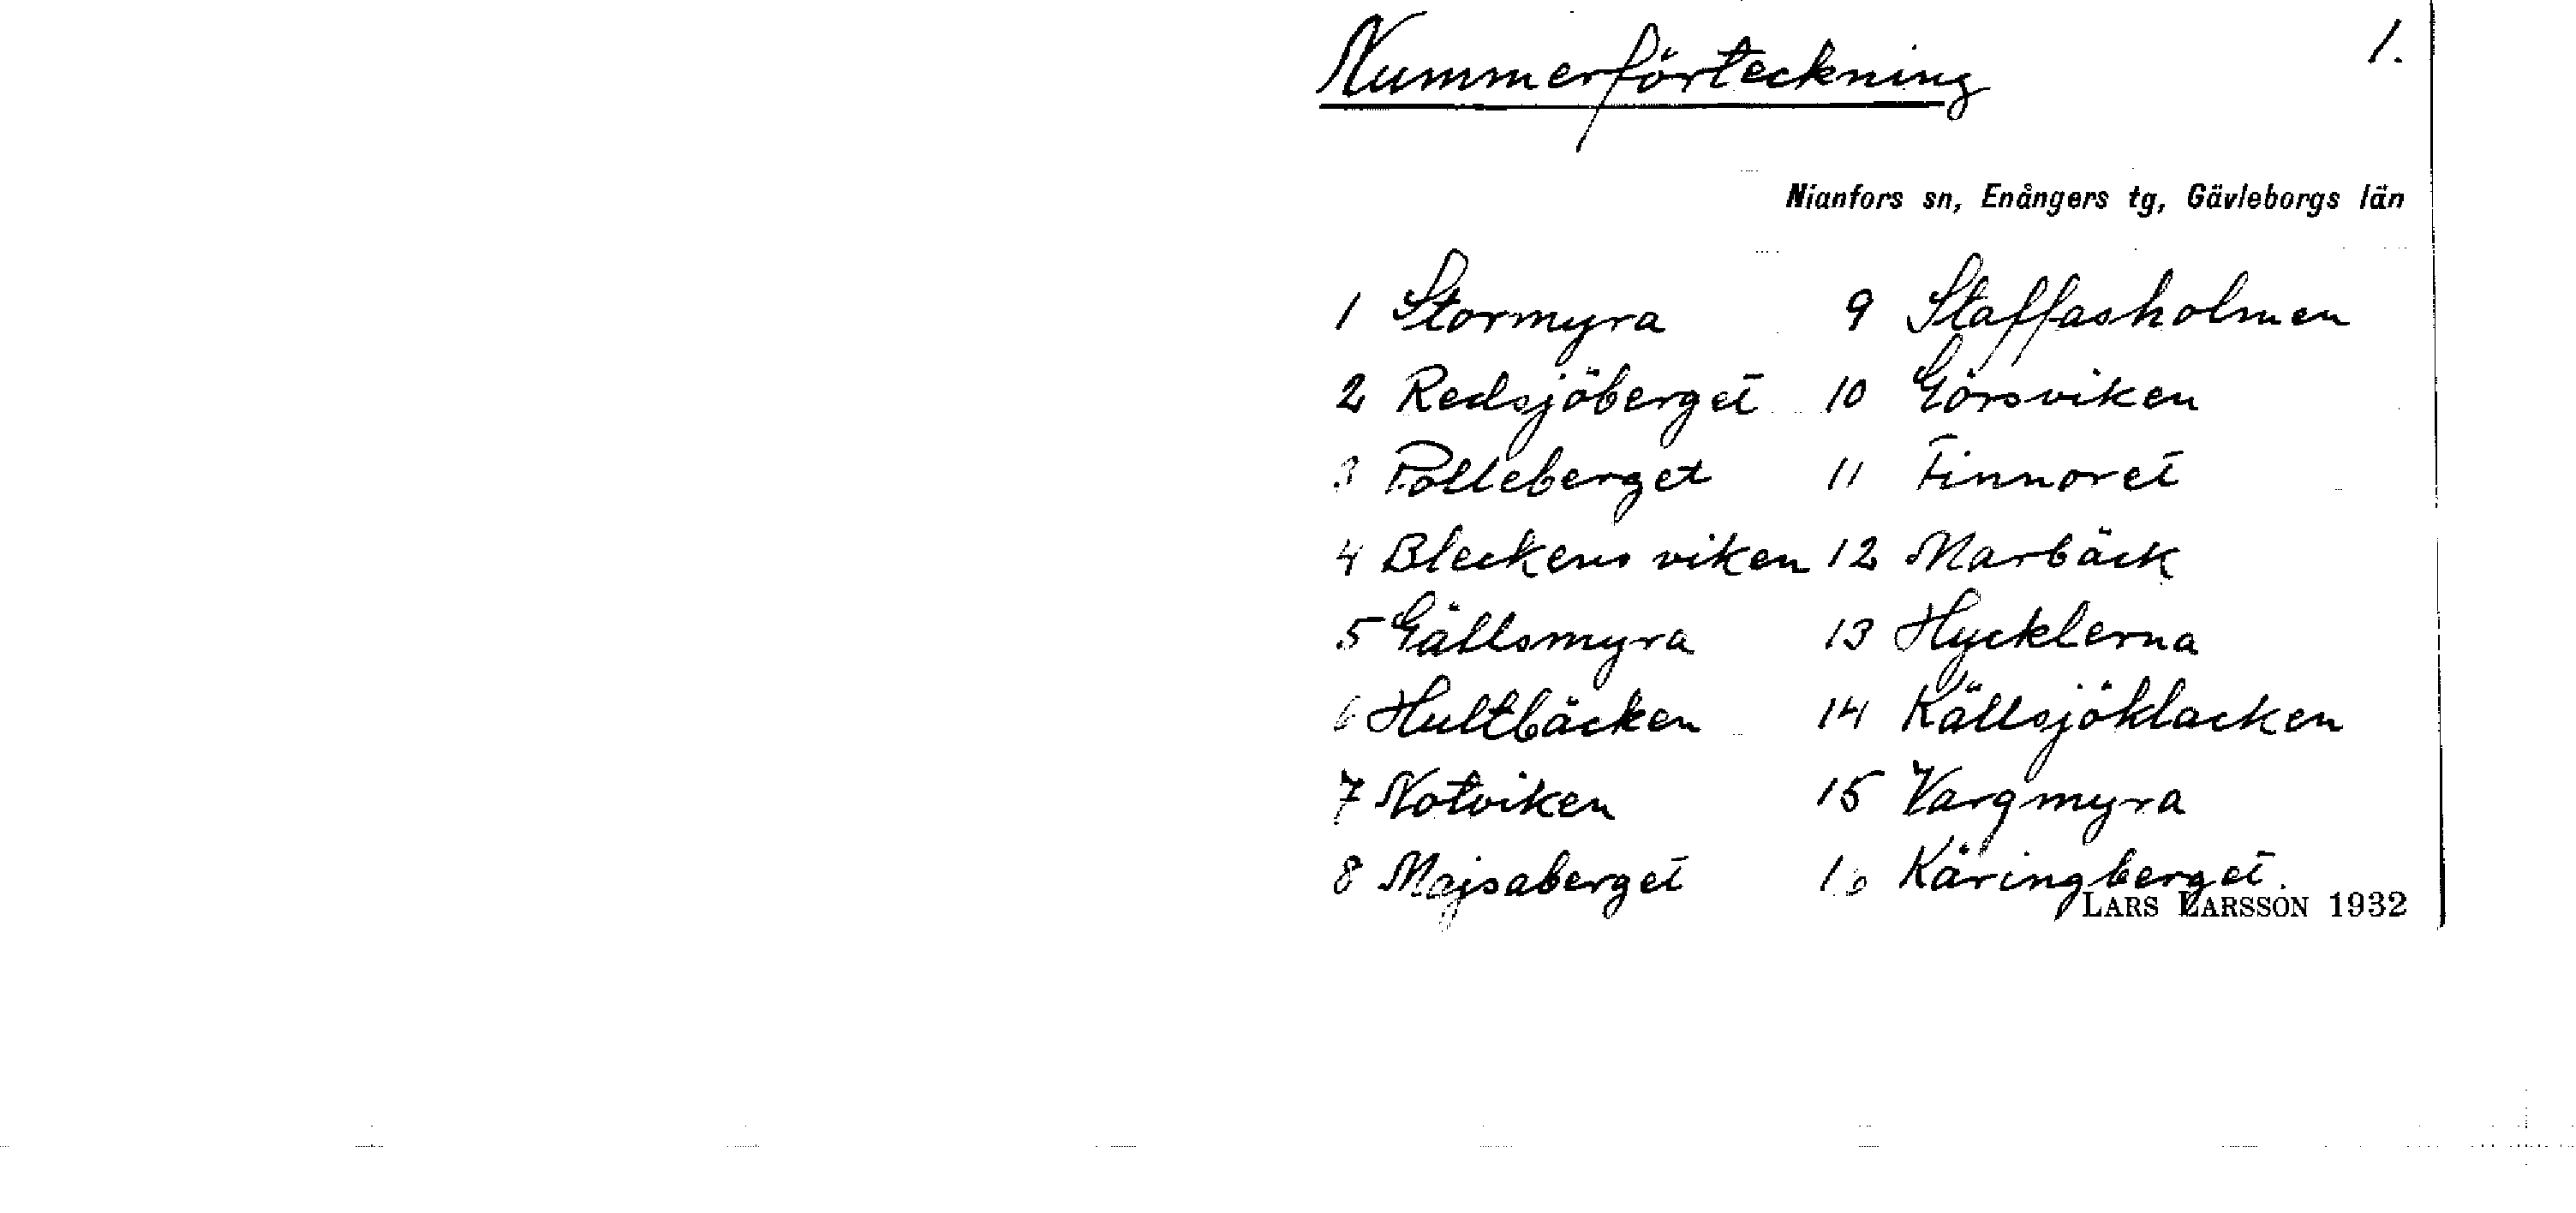 Nummerförteckning
1.
Nianfors sn, Enångers tg, Gävleborgs län
1 Stormyra
2 Redsjöberget
3 Polleberget
4 Bleckensviken
5 Gällsmyra
6 Hultbäcken
7 Notviken
8 Majsaberget
9 Staffasholmen
10 Görsviken
11 Finnoret
12 Marbäck
13 Hycklerna
14 Källsjöklacken
15 Vargmyra
16 Käringberget
LARS LARSSON 1932